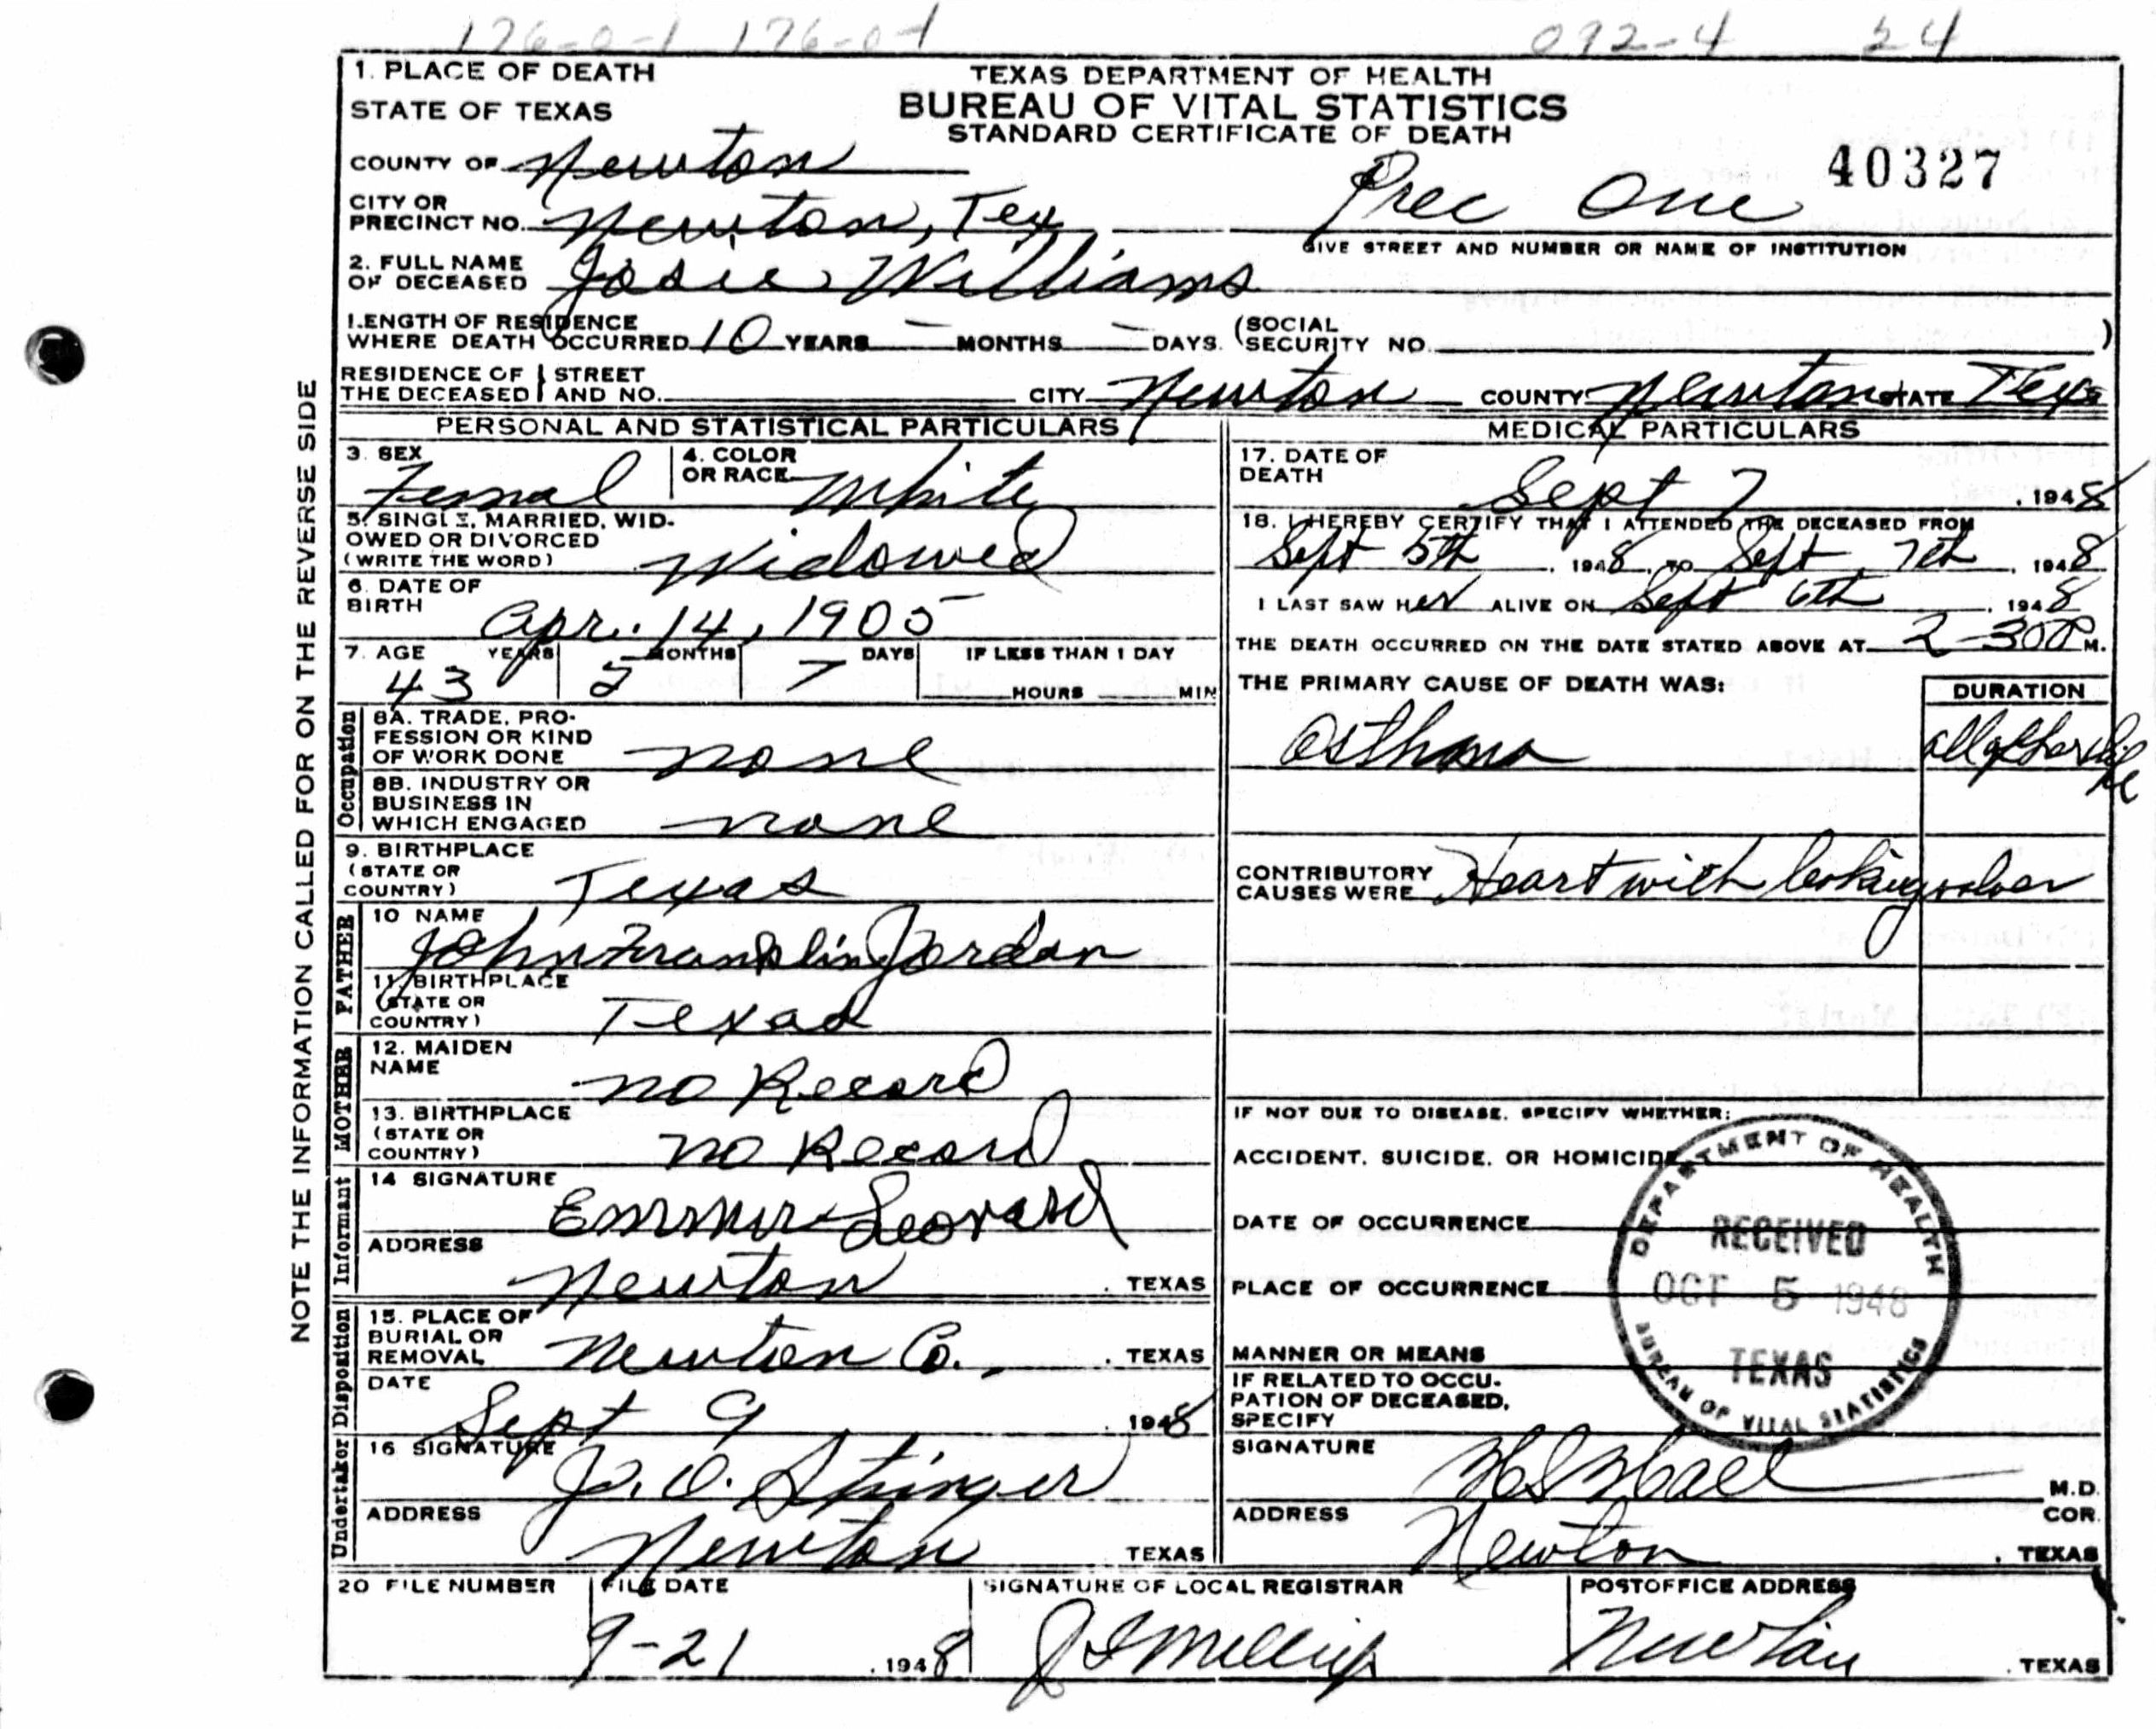 176-0-1 176-0-1 092-4 24
1. PLACE OF DEATH
STATE OF TEXAS
TEXAS DEPARTMENT OF HEALTH
BUREAU OF VITAL STATISTICS
STANDARD CERTIFICATE OF DEATH
40327
COUNTY OF Newton
CITY OR PRECINCT NO. Newton, Tex Prec One
GIVE STREET AND NUMBER OR NAME OF INSTITUTION
2. FULL NAME OF DECEASED Josie Williams
LENGTH OF RESIDENCE WHERE DEATH OCCURRED 10 YEARS — MONTHS — DAYS. (SOCIAL SECURITY NO. )
RESIDENCE OF THE DECEASED STREET AND NO. CITY Newton COUNTY Newton STATE Texs
NOTE THE INFORMATION CALLED FOR ON THE REVERSE SIDE
PERSONAL AND STATISTICAL PARTICULARS
3. SEX Femal 4. COLOR OR RACE White
5. SINGLE, MARRIED, WIDOWED OR DIVORCED (WRITE THE WORD) Widowed
6. DATE OF BIRTH Apr. 14, 1905
7. AGE YEARS MONTHS DAYS IF LESS THAN 1 DAY
43 5 7 HOURS MIN
Occupation
8A. TRADE, PROFESSION OR KIND OF WORK DONE none
8B. INDUSTRY OR BUSINESS IN WHICH ENGAGED none
9. BIRTHPLACE (STATE OR COUNTRY) Texas
FATHER
10 NAME John Franklin Jordan
11. BIRTHPLACE (STATE OR COUNTRY) Texas
MOTHER
12. MAIDEN NAME no Record
13. BIRTHPLACE (STATE OR COUNTRY) no Record
Informant
14 SIGNATURE Leonard
ADDRESS Newton, TEXAS
Disposition
15. PLACE OF BURIAL OR REMOVAL Newton Co., TEXAS
DATE Sept 9, 1948
Undertaker
16 SIGNATURE J. O. Stinger
ADDRESS Newton TEXAS
MEDICAL PARTICULARS
17. DATE OF DEATH Sept 7, 1948
18. I HEREBY CERTIFY THAT I ATTENDED THE DECEASED FROM
Sept 5th, 1948, TO Sept 7th, 1948
I LAST SAW HER ALIVE ON Sept 6th, 1948
THE DEATH OCCURRED ON THE DATE STATED ABOVE AT 2-30 P M.
THE PRIMARY CAUSE OF DEATH WAS: DURATION
Asthma all of her life
CONTRIBUTORY CAUSES WERE Heart with leaking
IF NOT DUE TO DISEASE, SPECIFY WHETHER:
ACCIDENT, SUICIDE, OR HOMICIDE
DATE OF OCCURRENCE
PLACE OF OCCURRENCE
MANNER OR MEANS
IF RELATED TO OCCUPATION OF DECEASED, SPECIFY
DEPARTMENT OF HEALTH
RECEIVED
OCT 5 1948
TEXAS
BUREAU OF VITAL STATISTICS
SIGNATURE M.D.
COR.
ADDRESS Newton, TEXAS
20 FILE NUMBER FILE DATE SIGNATURE OF LOCAL REGISTRAR POSTOFFICE ADDRESS
9-21, 1948 Newton, TEXAS